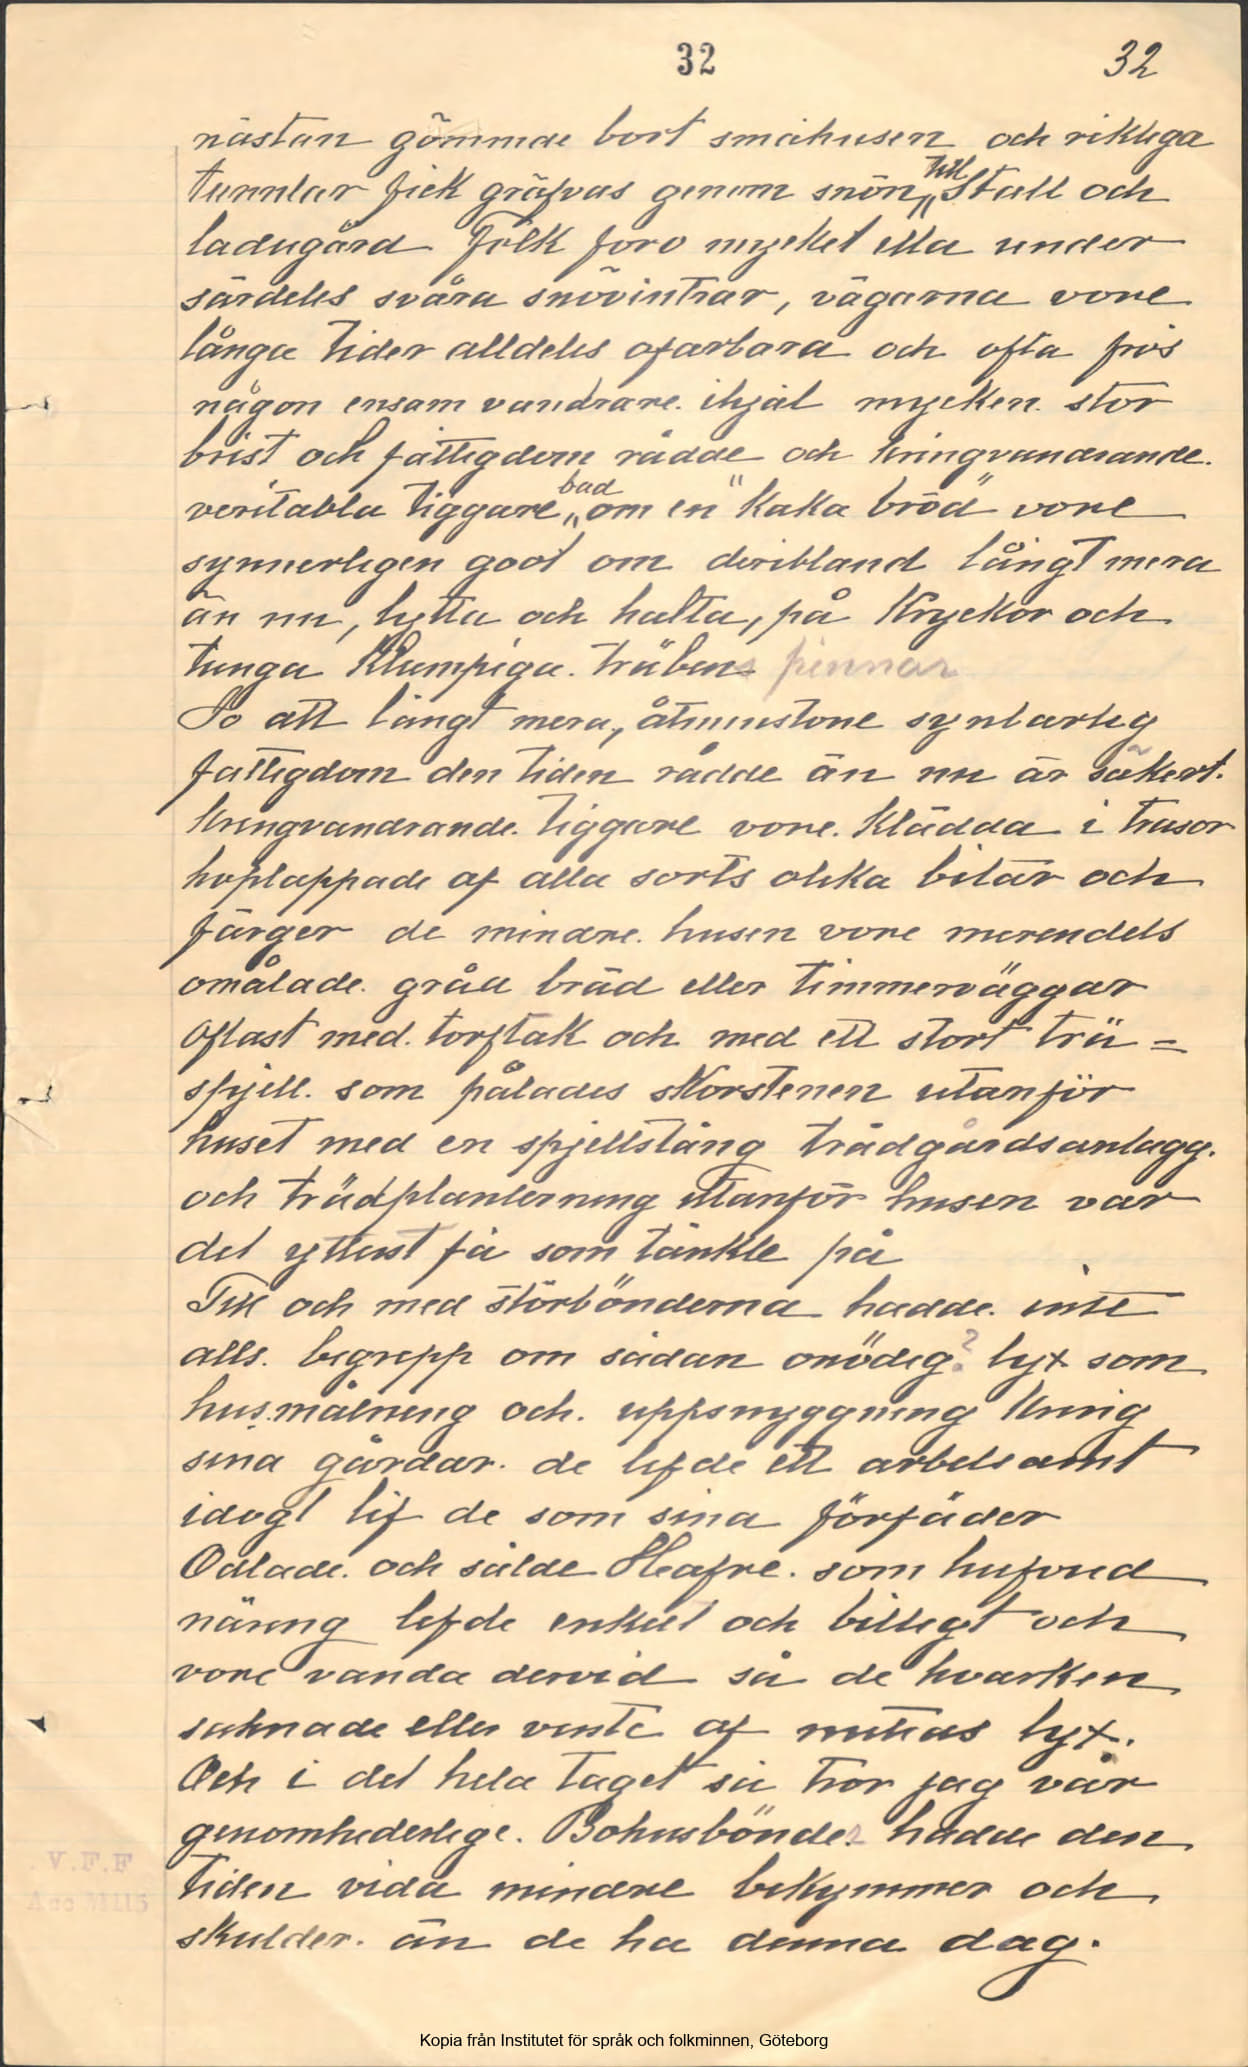 32 32
nästan gömmde bort småhusen och riktiga
tunnlar fick gräfvas genom snön, till stall och
ladugård Folk foro mycket illa under
särdeles svåra snövintrar, vägarna vore
långa tider alldeles ofarbara och ofta frös
någon ensam vandrare. ihjäl mycken. stor
brist och fattigdom rådde och kringvandrande.
veritabla tiggare, bad om en "kaka bröd" vore
synnerligen godt om deribland långt mera
än nu, lytta och halta, på kryckor och
tunga klumpiga. träbens pinnar
So att långt mera, åtminstone synbarlig
fattigdom den tiden rådde än nu är säkert.
kringvandrande. tiggare vore. klädda i trasor
hoplappade af alla sorts olika bitar och
färger de mindre. husen vore merendels
omålade. gråa bräd eller timmerväggar
oftast med. torftak och med ett stort trä=
spjell. som pålades skorstenen utanför
huset med en spjellstång trädgårdsanlägg.
och trädplanterning utanför husen var
det ytterst få som tänkte på
Till och med storbönderna hadde. inte
alls. begrepp om sådan onödig? lyx som
husmålning och. uppsnyggning kring
sina gårdar. de lefde ett arbetsamt
idogt lif de som sina förfäder
Odlade. och sålde Hafre. som hufvud
näring lefde enkelt och billigt och
vore vanda dervid så de hvarken
saknade eller viste af nutidas lyx.
Och i det hela taget så tror jag vår
genomhederlige. Bohusbönder hadde den
tiden vida mindre bekymmer och
skulder. än de ha denna dag.
V.F.F
Acc M115
Kopia från Institutet för språk och folkminnen, Göteborg